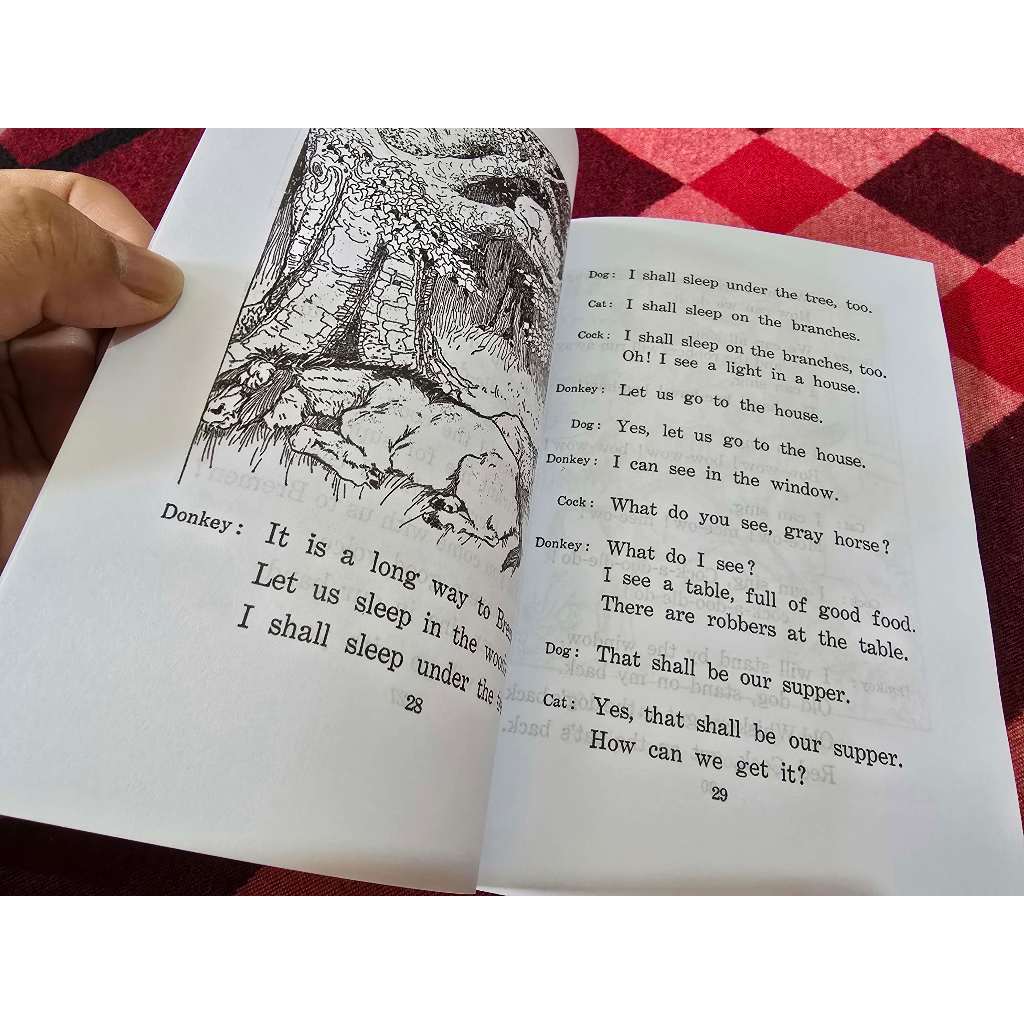 Donkey: It is a long way to
Let us sleep in the
I shall sleep under the
28
Dog: I shall sleep under the tree, too.
Cat: I shall sleep on the branches.
Cock: I shall sleep on the branches, too.
Oh! I see a light in a house.
Donkey: Let us go to the house.
Dog: Yes, let us go to the house.
Donkey: I can see in the window.
Cock: What do you see, gray horse?
Donkey: What do I see?
I see a table, full of good food.
There are robbers at the table.
Dog: That shall be our supper.
Cat: Yes, that shall be our supper.
How can we get it?
29